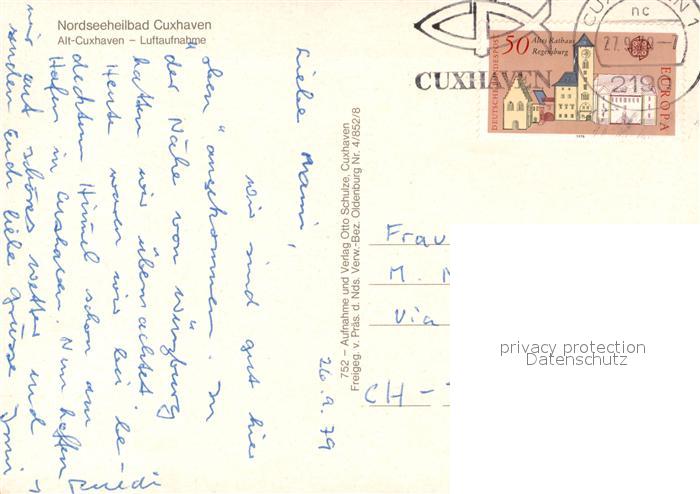 Nordseeheilbad Cuxhaven
Alt-Cuxhaven – Luftaufnahme
26.9.79
Liebe Mami,
wir sind gut hier
oben "angekommen. In
der Nähe von Würzburg
hatten wir übernachtet.
Heute waren wir bei be-
decktem Himmel schon am
Hafen in Cuxhaven. Nun hoffen
wir auf schönes Wetter und
senden Euch liebe Grüsse
Ruedi
752 – Aufnahme und Verlag Otto Schulze, Cuxhaven
Freigeg. v. Präs. d. Nds. Verw.-Bez. Oldenburg Nr. 4/852/8
CUXHAVEN
CUXHAVEN 1
nc
27.9.
219
DEUTSCHE BUNDESPOST
50
Altes Rathaus
Regensburg
EUROPA
1978
Frau
M.
Via
CH -
privacy protection
Datenschutz